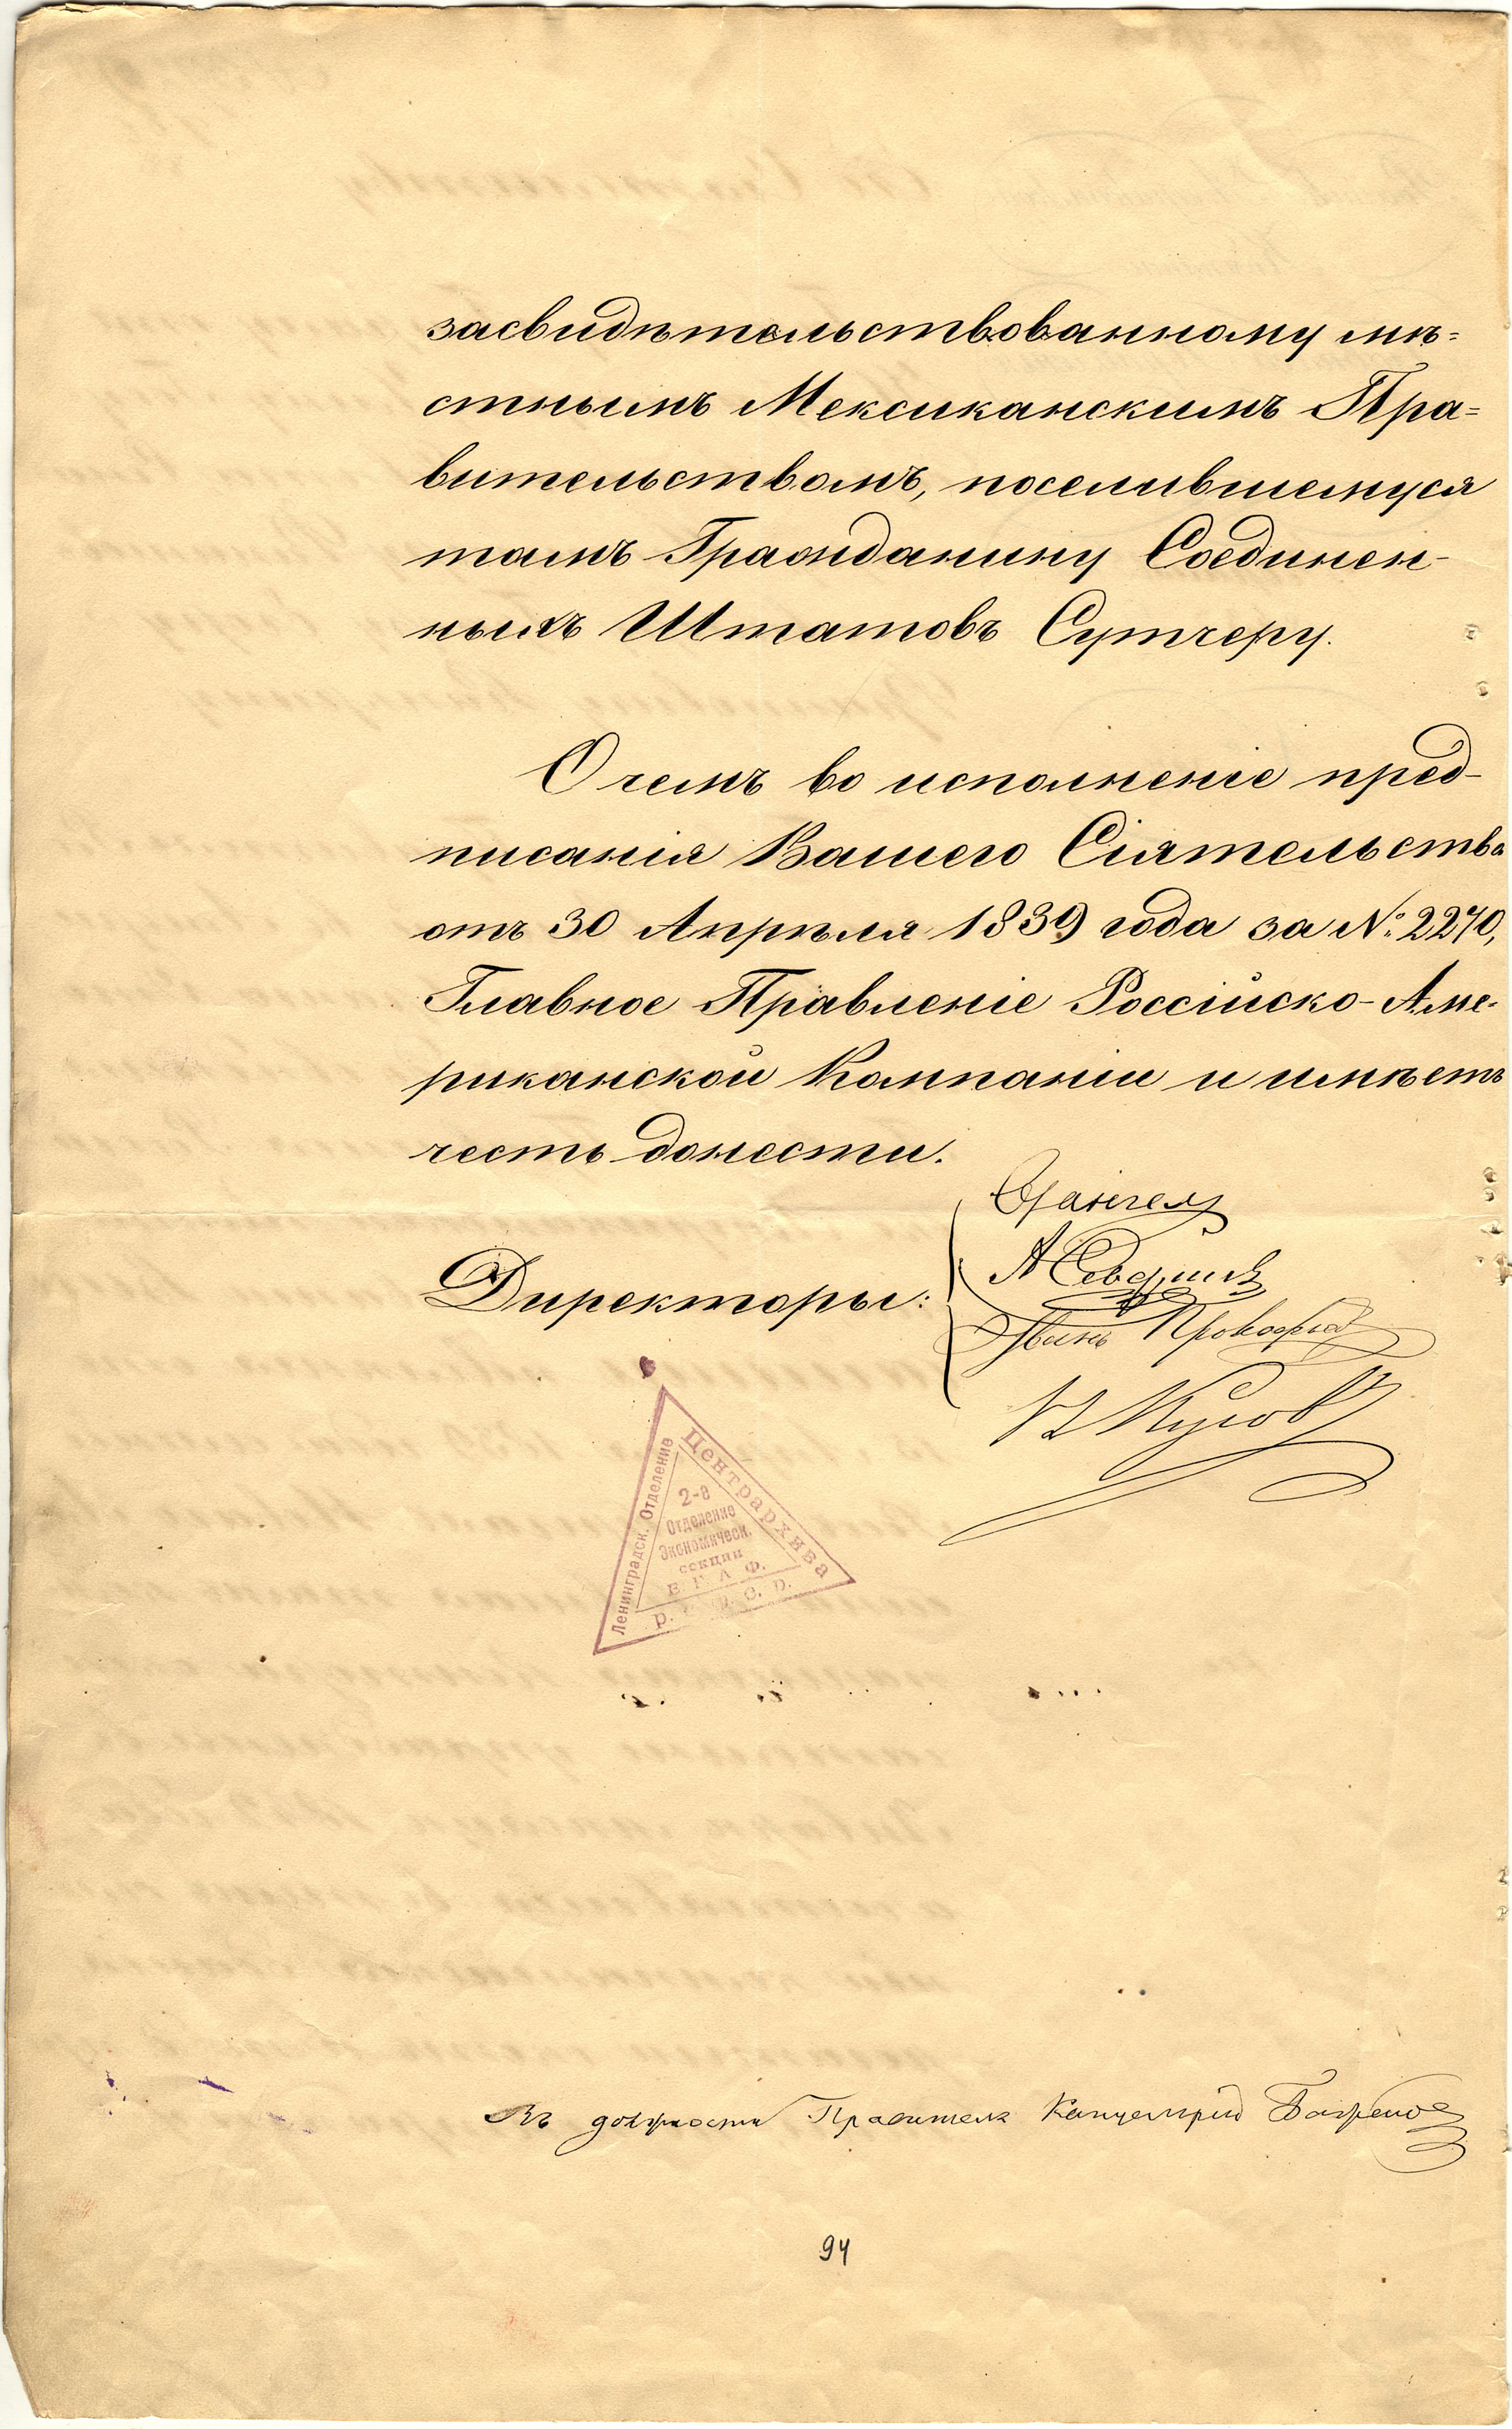 засвидѣтельствованному мѣ=
стнымъ Мексиканскимъ Пра=
вительствомъ, поселившемуся
тамъ Гражданину Соединен-
ныхъ Штатовъ Сутчеру.
О чемъ во исполненіе пред-
писанія Вашего Сіятельства
отъ 30 Апрѣля 1839 года за №: 2270,
Главное Правленіе Россійско-Аме-
риканской Компаніи и имѣетъ
честь донести.
Врангель
А Северинъ
Директоры:
Иванъ Прокофьев
Н Кусовъ
Ленинградск. Отделение
Центрархива
2-е
Отделение
Экономическ.
секции
Е Г А Ф.
Р. С. Ф. С. Р.
Въ должности Правителя Канцеляріи
94